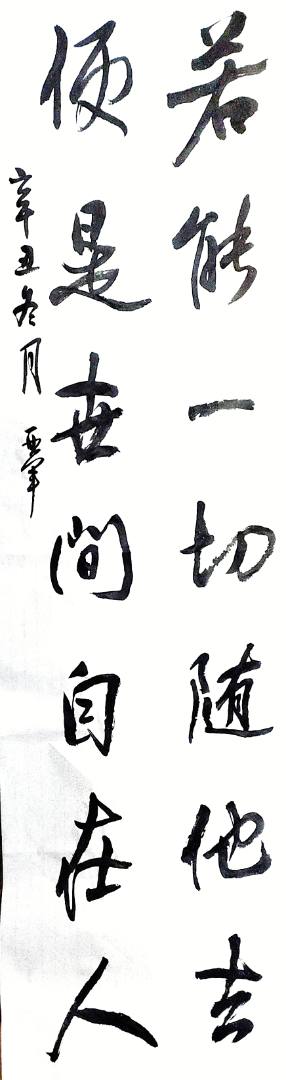 若能一切随他去
便是世间自在人
辛丑冬月